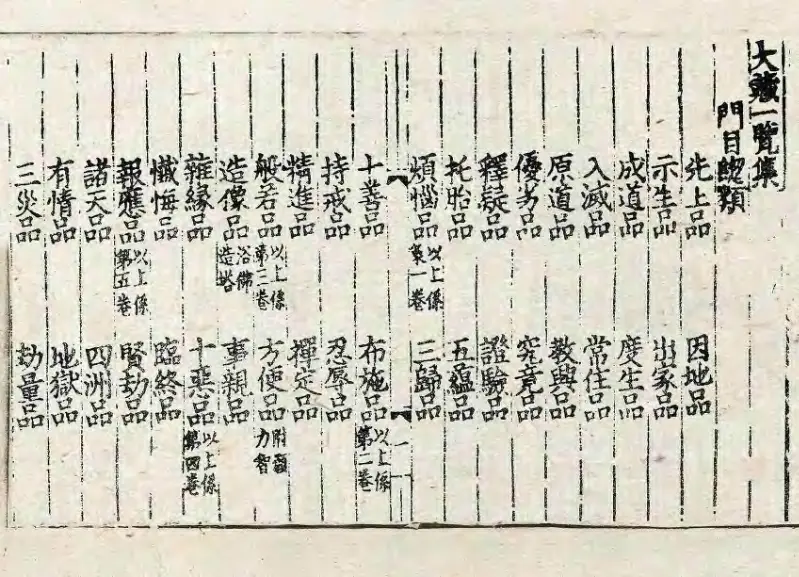 大藏一覽集
門目總類
先上品 因地品
示生品 出家品
成道品 度生品
入滅品 常住品
原道品 教興品
優劣品 究竟品
釋疑品 證驗品
托胎品 五蘊品
煩惱品以上係第一卷 三歸品
十善品 布施品以上係第二卷
持戒品 忍辱品
精進品 禪定品
般若品以上係第三卷 方便品附願力智
造像品浴佛造塔 事親品
雜緣品 十惡品以上係第四卷
懺悔品 臨終品
報應品以上係第五卷 賢劫品
諸天品 四洲品
有情品 地獄品
三災品 劫量品